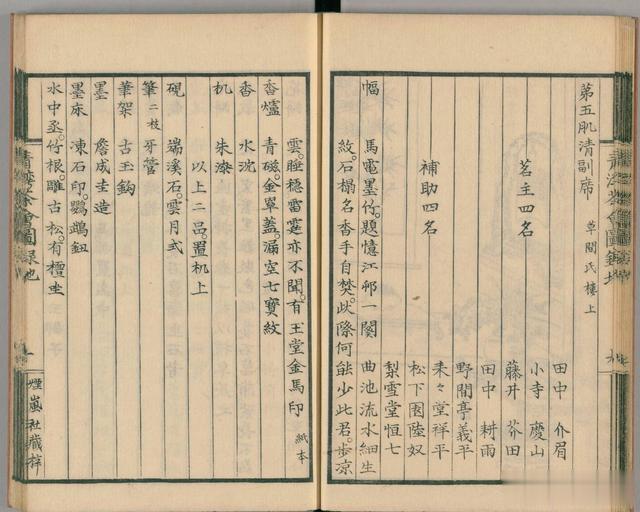 第五肌清副席 草間氏樓上
茗主四名
田中 介眉
小寺 慶山
藤井 芥田
田中 耕雨
補助四名
野間亭義平
来々堂祥平
松下園陸奴
梨雪堂恒七
幅 馬電墨竹。題憶江邨一闋 曲池流水細生
紋。石榻名香手自焚。此際何能少此君。歩凉
雲。睡穏雷霆亦不聞。有玉堂金馬印 紙本
香爐 青磁。金單蓋。漏空七寶紋
香 水沈
机 朱漆
以上二品。置机上
硯 端溪石。雲月式
筆 二枝 牙管
筆架 古玉鈎
墨 詹成圭造
墨床 凍石印。鸚鵡鈕
水中丞。竹根。雕古松。有檀坐
煙嵐社藏梓